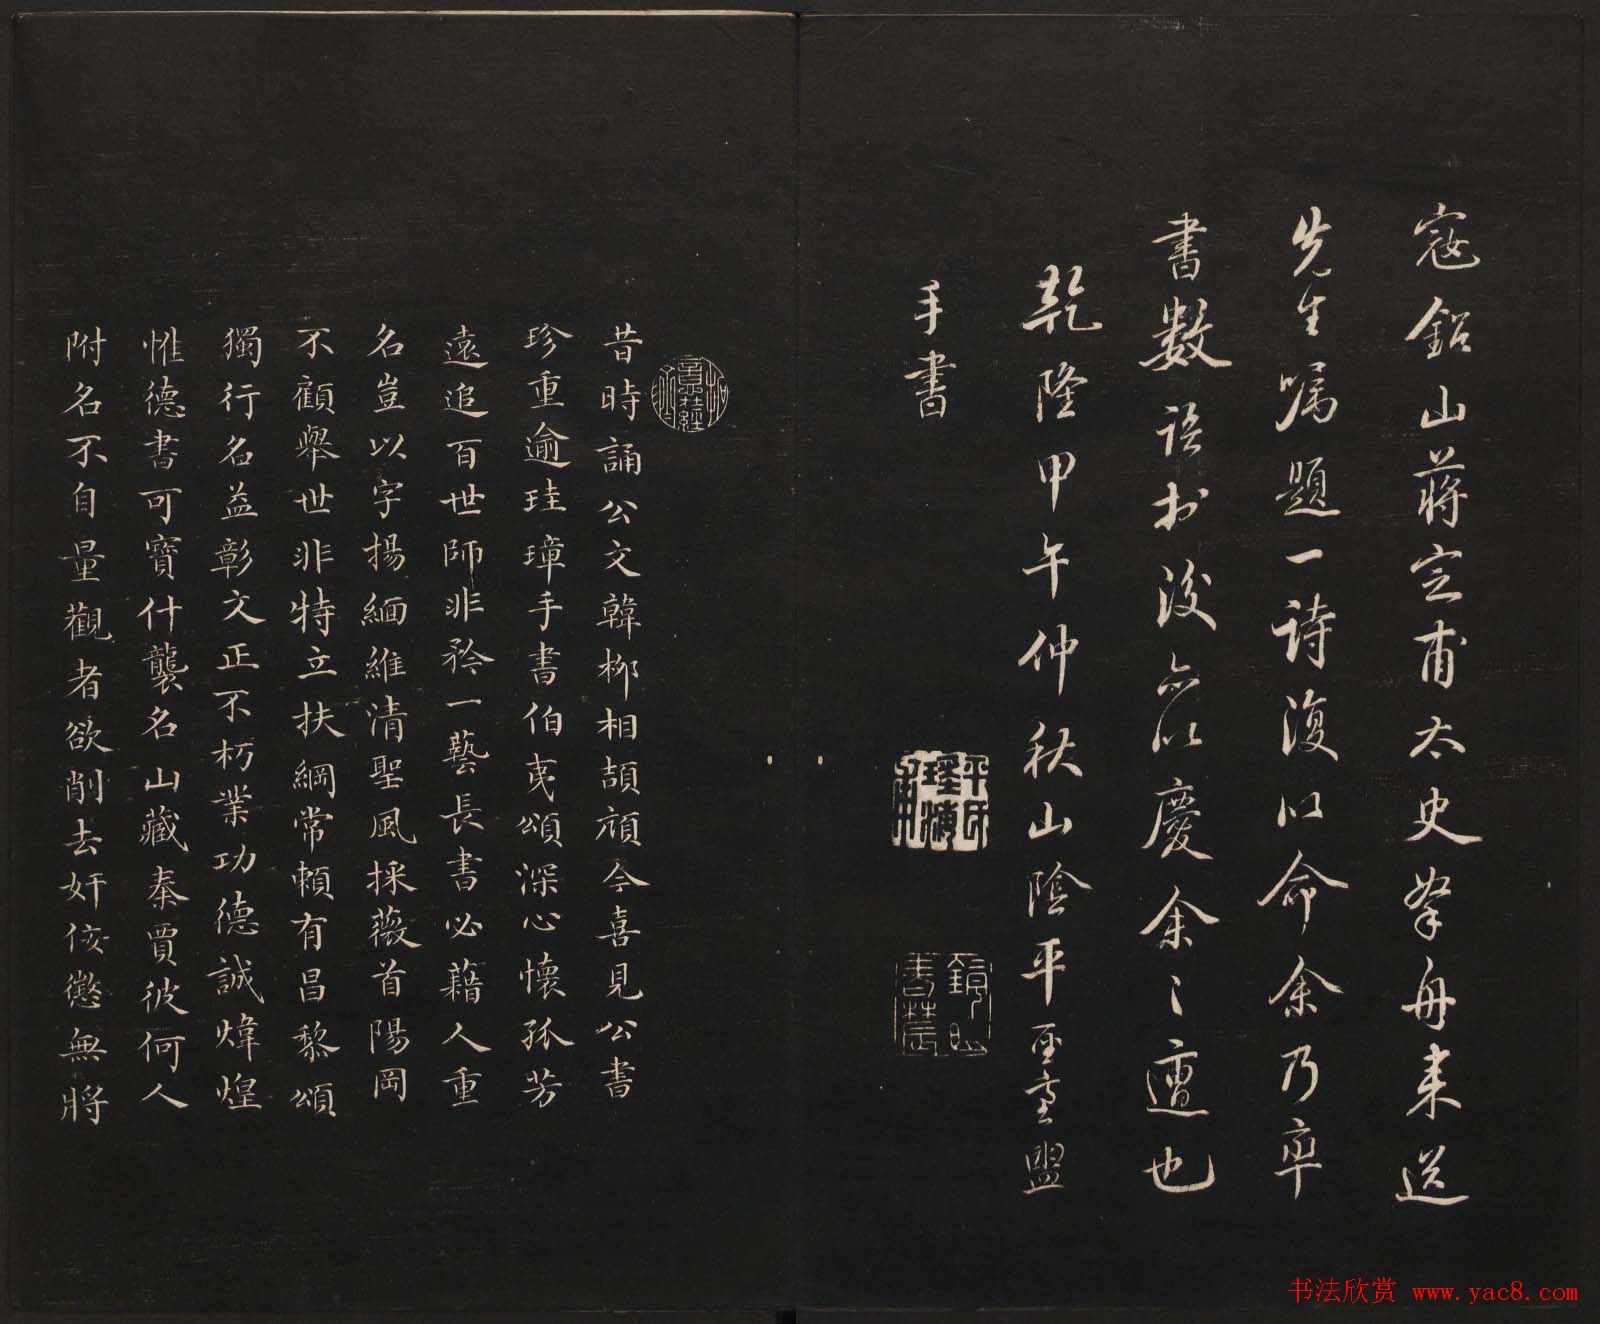 寇鉛山蔣定甫太史拏舟来送
先生嘱題一詩復以命余乃率
書數語於後亦以慶余之遭也
乾隆甲午仲秋山陰平聖臺盥
手書
昔時誦公文韓栁相頡頏今喜見公書
珍重逾珪璋手書伯夷頌深心懷孤芳
遠追百世師非矜一藝長書必藉人重
名豈以字揚緬維清聖風採薇首陽岡
不顧舉世非特立扶綱常頼有昌黎頌
獨行名益彰文正不朽業功德誠煒煌
惟德書可寶什襲名山藏秦賈彼何人
附名不自量觀者欲削去奸佞懲無將
书法欣赏 www.yac8.com